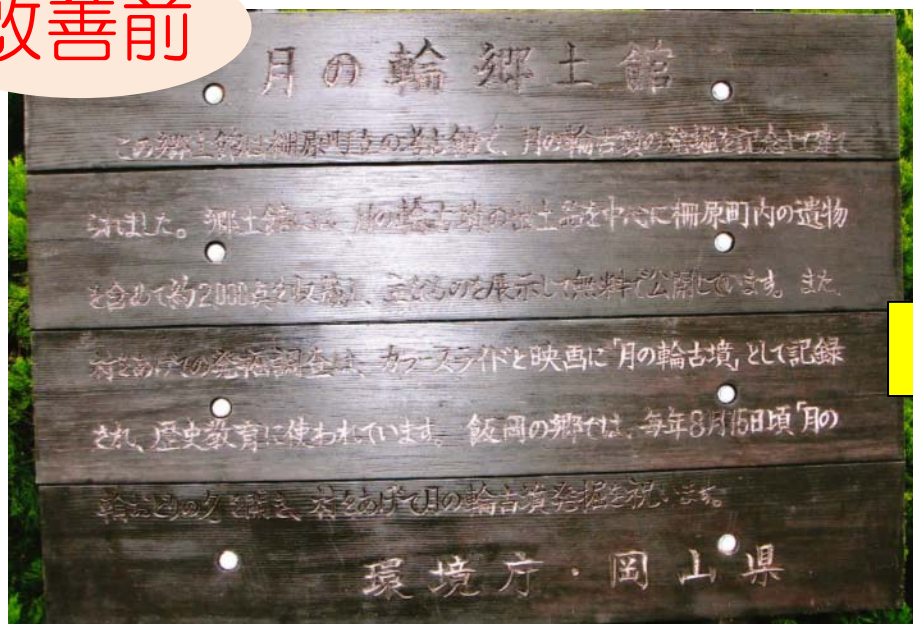 改善前
月の輪郷土館
この郷土館は柵原町立の考古館で、月の輪古墳の発掘を記念して建て
られました。郷土館には、月の輪古墳の出土品を中心に柵原町内の遺物
を含めて約2000点を収蔵し、主なものを展示して無料で公開しています。また、
村をあげての発掘調査は、カラースライドと映画に「月の輪古墳」として記録
され、歴史教育に使われています。飯岡の郷では、毎年8月15日頃「月の
輪おどりの夕」を開き、村をあげて月の輪古墳発掘を祝います。
環境庁・岡山県